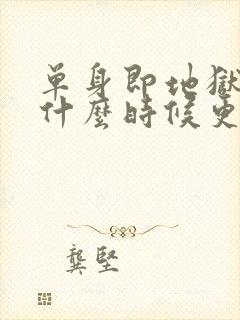 單身即地獄
什麼時候更
龔堅